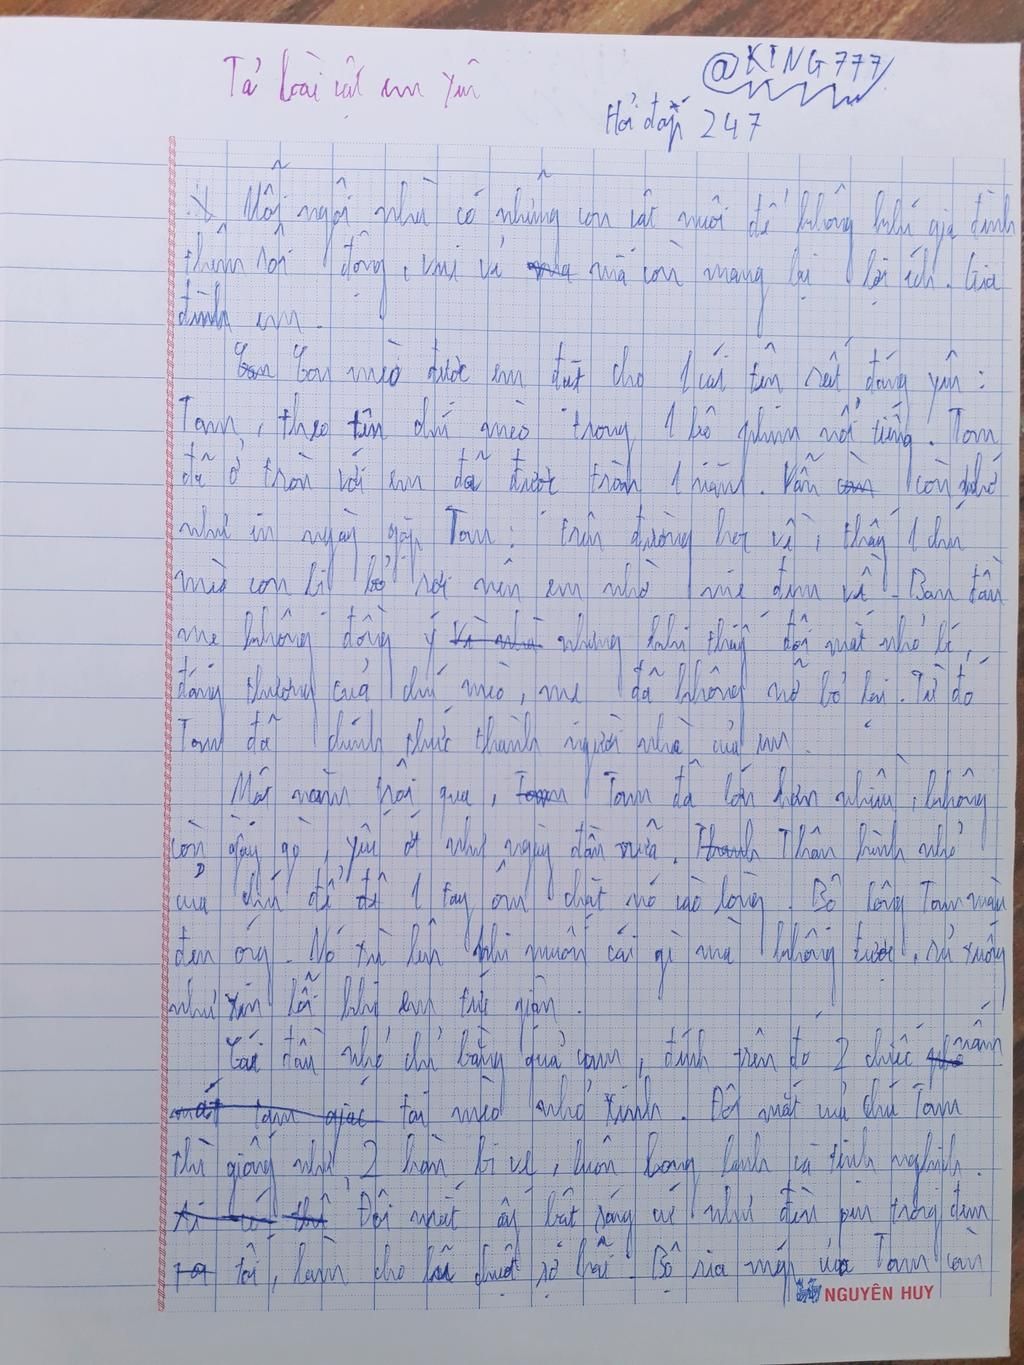 Tả loài vật em yêu
@KING777
Hỏi đáp 247
Mỗi ngôi nhà có những con vật nuôi để không khí gia đình
thêm sôi động, vui vẻ mà còn mang lại lợi ích. Gia
đình em.
Con mèo được em đặt cho 1 cái tên rất đáng yêu:
Tom, theo tên chú mèo trong 1 bộ phim nổi tiếng. Tom
đã ở với em đã được tròn 1 năm. Vẫn còn nhớ
như in ngày gặp Tom: trên đường học về, thấy 1 chú
mèo con bị bỏ rơi nên em nhờ mẹ đem về. Ban đầu
mẹ không đồng ý nhưng khi thấy đôi mắt nhỏ bé,
đáng thương của chú mèo, mẹ đã không nỡ bỏ lại. Từ đó
Tom đã chính thức thành người nhà của em.
Một năm trôi qua, Tom đã lớn hơn nhiều, không
còn gầy gò, yếu ớt như ngày đầu nữa. Thân hình nhỏ
của chú để 1 tay ôm chặt nó vào lòng. Bộ lông Tom màu
đen óng. Nó xù lên khi muốn cái gì mà không được, rủ xuống
như xin lỗi khi em tức giận.
Cái đầu nhỏ chỉ bằng quả cam, đính trên đó 2 chiếc nấm
tai mèo nhỏ xinh. Đôi mắt của chú Tom
thì giống như 2 hòn bi ve, luôn long lanh và tinh nghịch.
Đôi mắt ấy bật sáng như đèn pin trong đêm
tối, làm cho lũ chuột sợ hãi. Bộ ria mép của Tom còn
NGUYÊN HUY